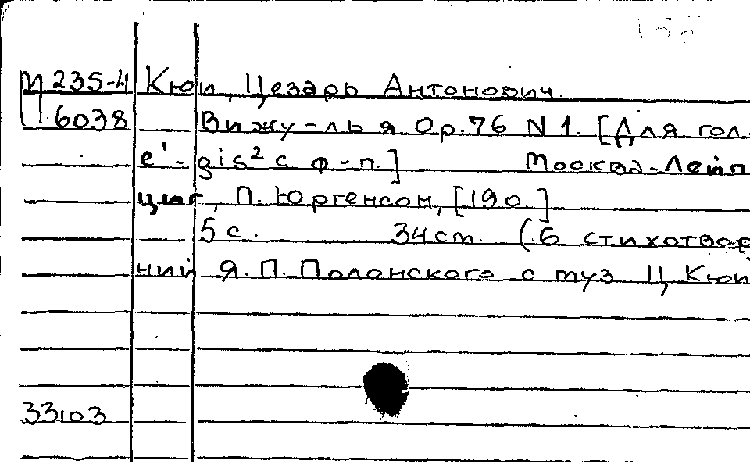 М 235-4 Кюи, Цезарь Антонович.
6038 Вижу-ль я Op. 76 N 1. [Для гол.
e'-gis² с ф-п.] Москва-Лейп
циг, П. Юргенсон, [190 ]
5 с. 34 cm. (6 стихотворе
ний Я. П. Полонского с муз Ц. Кюи
33103